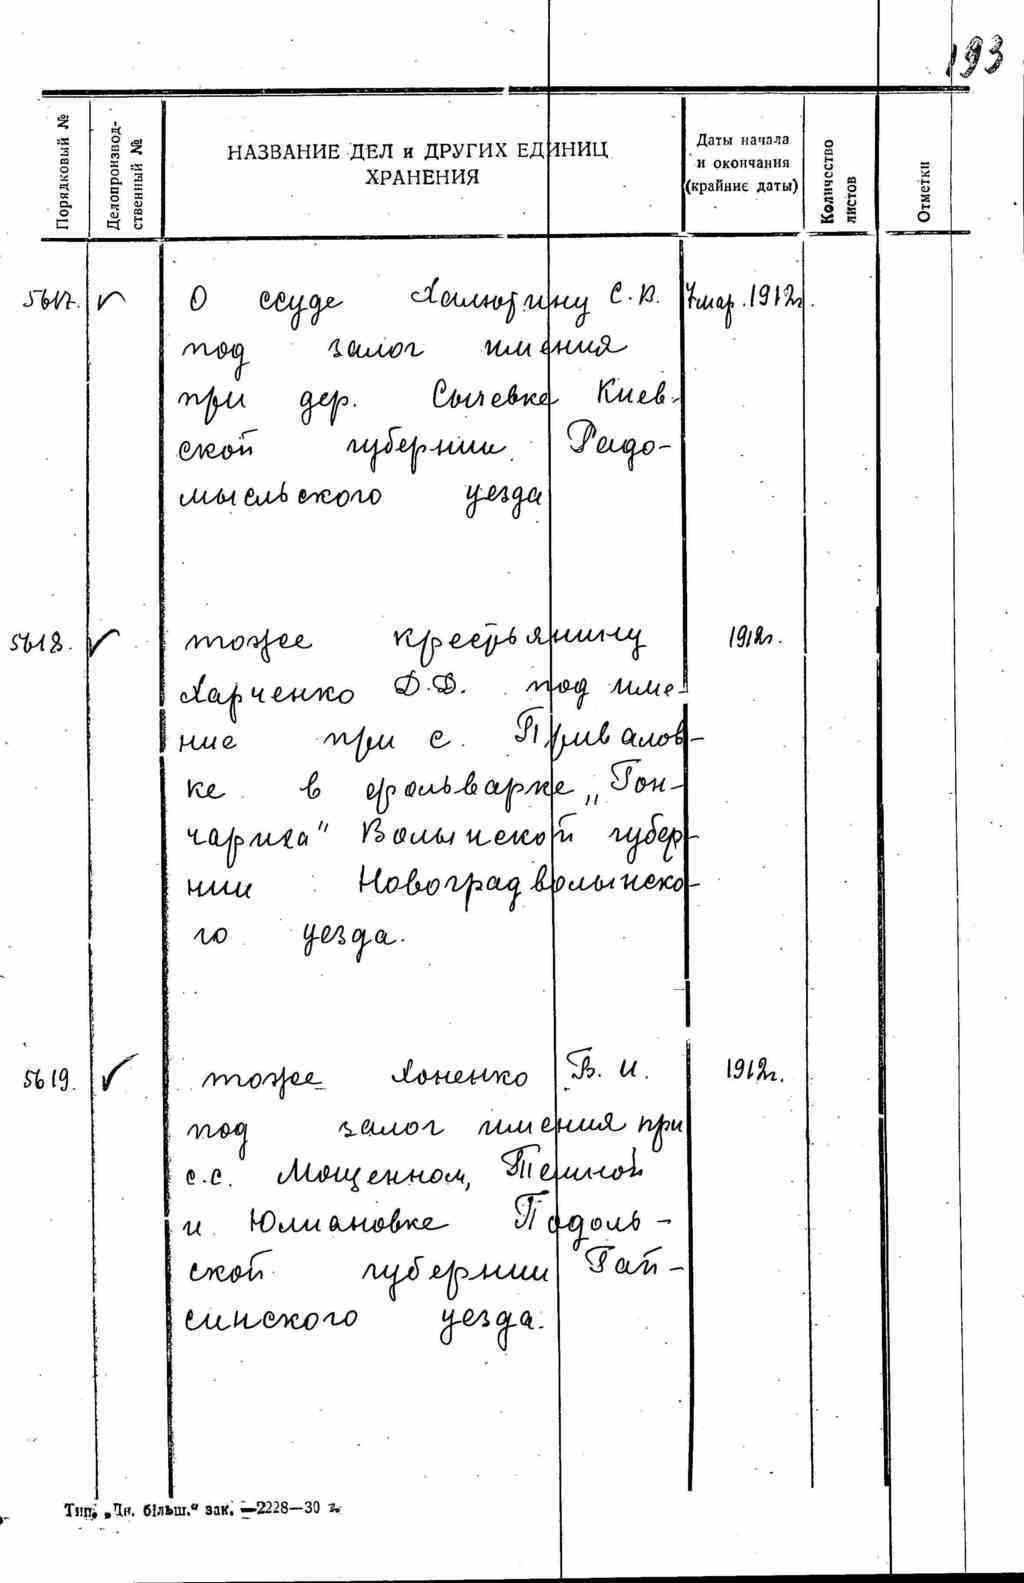 193
Порядковый №
Делопроизвод-
ственный №
НАЗВАНИЕ ДЕЛ и ДРУГИХ ЕДИНИЦ
ХРАНЕНИЯ
Даты начала
и окончания
(крайние даты)
Количество
листов
Отметки
5617. О ссуде Халютину С.В. 7 мар. 1912г.
под залог имения
при дер. Сычевке Киев-
ской губернии Радо-
мысльского уезда
5618. тоже крестьянину 1912г.
Харченко Д.Д. под име-
ние при с. Привалов-
ке в фольварке „Гон-
чариха" Волынской губер-
нии Новоградволынско-
го уезда.
5619. тоже Хоненко В. И. 1912г.
под залог имения при
с.с. Мощенном, Тешной
и Юлиановке Подоль-
ской губернии Гай-
синского уезда.
Тип. „Ін. більш." зак. —2228—30 г.